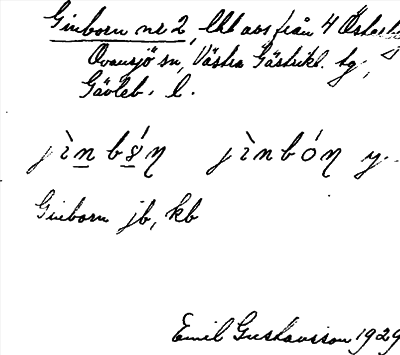 Ginborn nr 2, lht avs från 4 Österby
Ovansjö sn, Västra Gästrikl. tg,
Gävleb. l.
jìn bón jìnbón y.
Ginborn jb, kb
Emil Gustavsson 1929